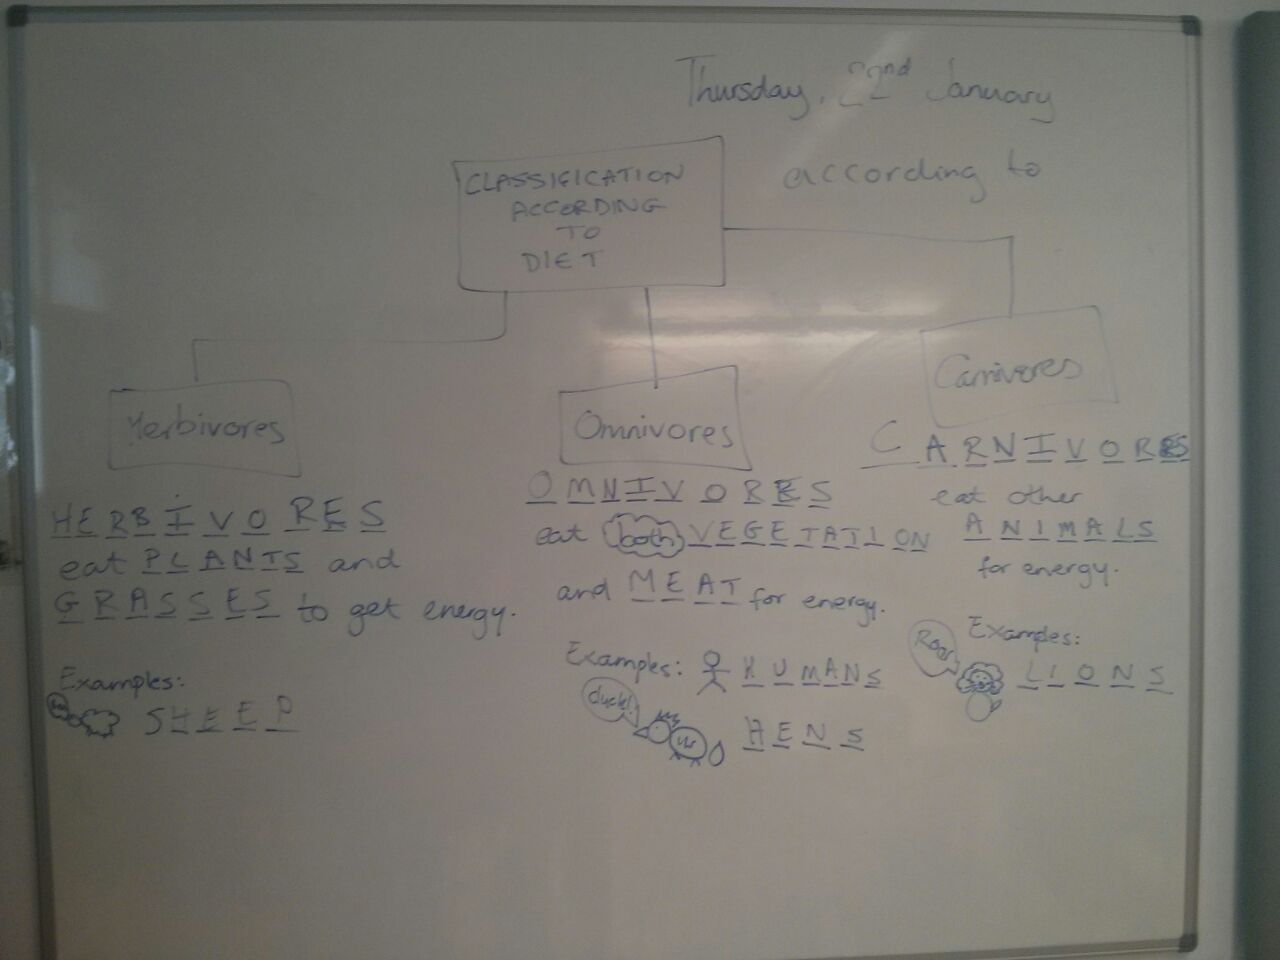 Thursday, 22nd January
according to
CLASSIFICATION
ACCORDING
TO
DIET
Herbivores
HERBIVORES
eat PLANTS and
GRASSES to get energy.
Examples:
SHEEP
Omnivores
OMNIVORES
eat both VEGETATION
and MEAT for energy.
Examples: HUMANS
cluck!
HENS
Carnivores
CARNIVORES
eat other
ANIMALS
for energy.
Examples:
Roar
LIONS